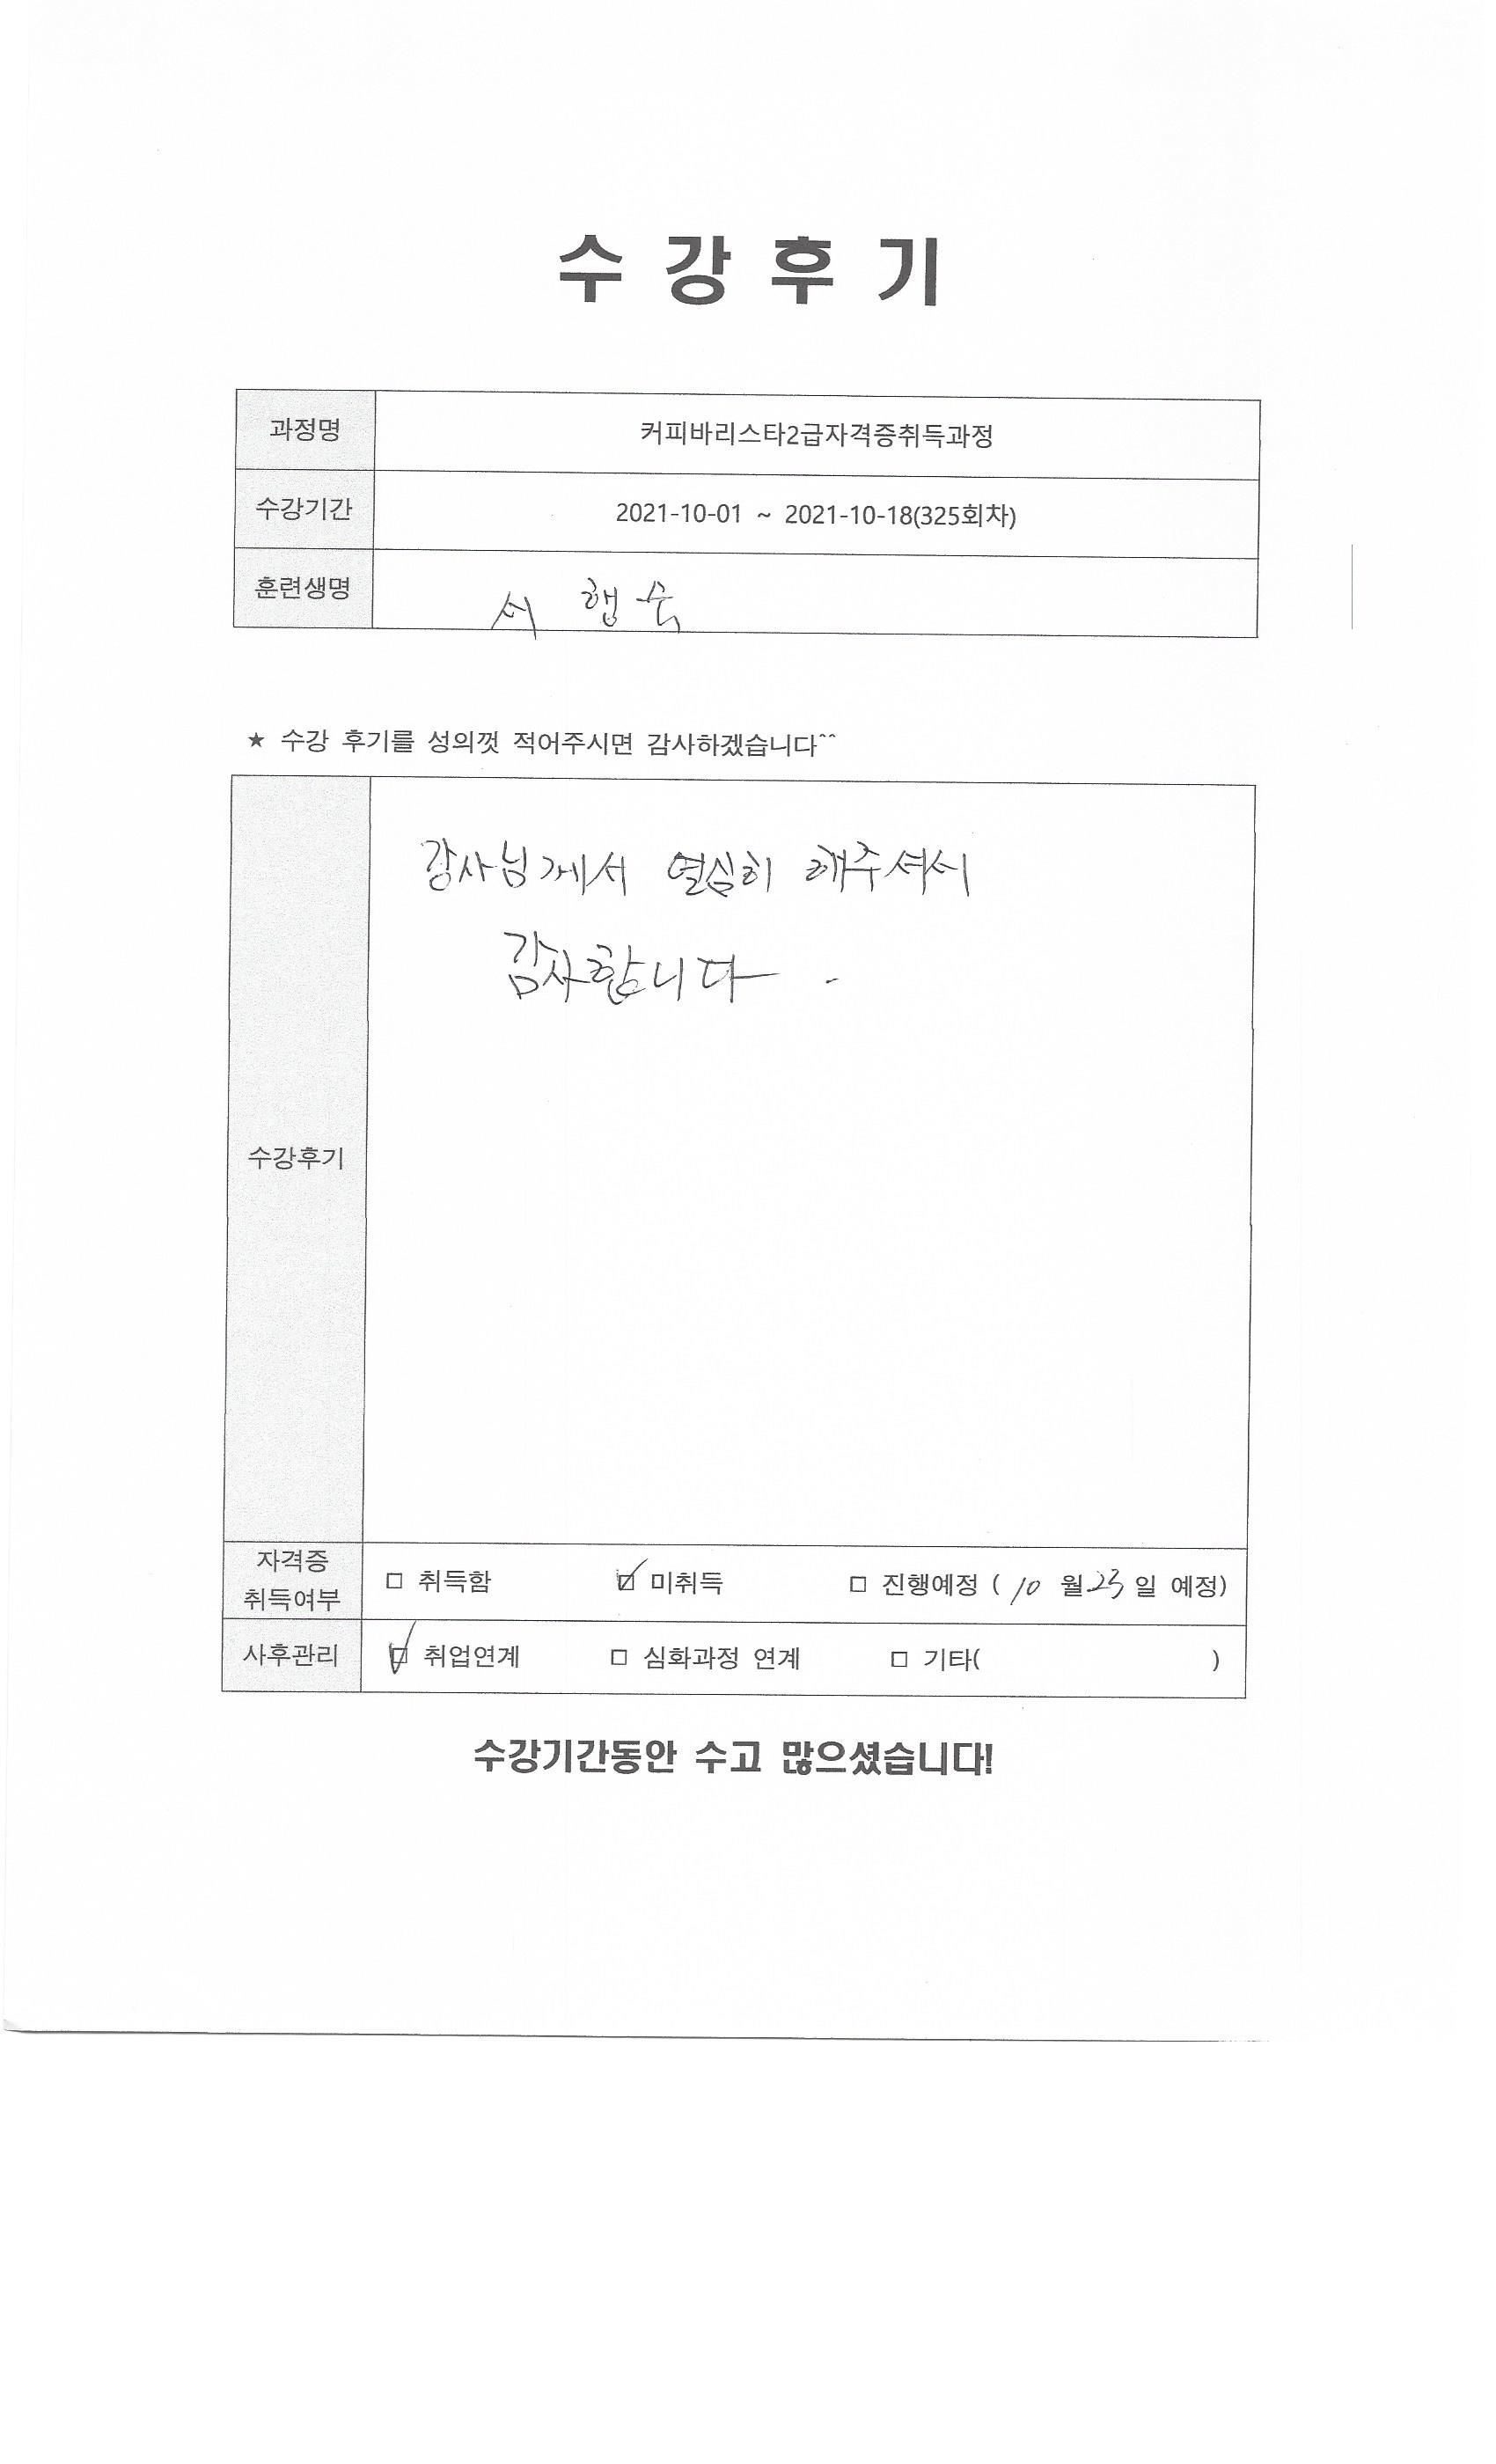 수 강 후 기
과정명 커피바리스타2급자격증취득과정
수강기간 2021-10-01 ~ 2021-10-18(325회차)
훈련생명 서 행숙
★ 수강 후기를 성의껏 적어주시면 감사하겠습니다^^
강사님께서 열심히 해주셔서
감사합니다.
수강후기
자격증
취득여부 □ 취득함 ☑ 미취득 □ 진행예정 ( 10 월 23 일 예정)
사후관리 ☑ 취업연계 □ 심화과정 연계 □ 기타( )
수강기간동안 수고 많으셨습니다!